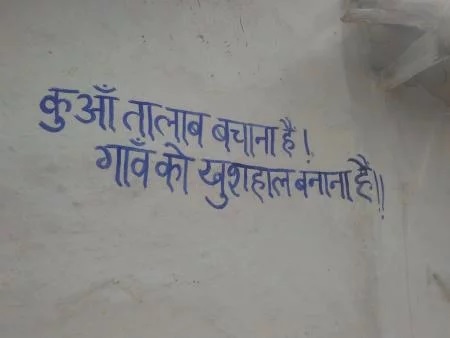 कुआँ तालाब बचाना है।
गाँव को खुशहाल बनाना है॥